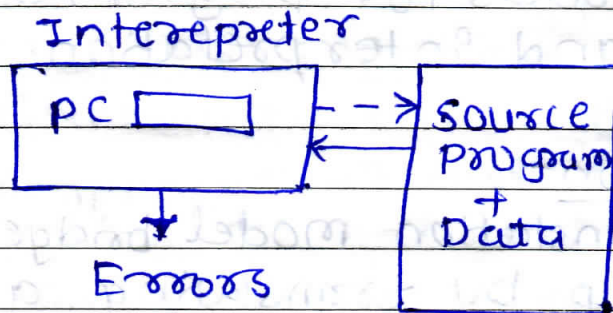 Interepreter
PC
source
program
+
Data
Errors